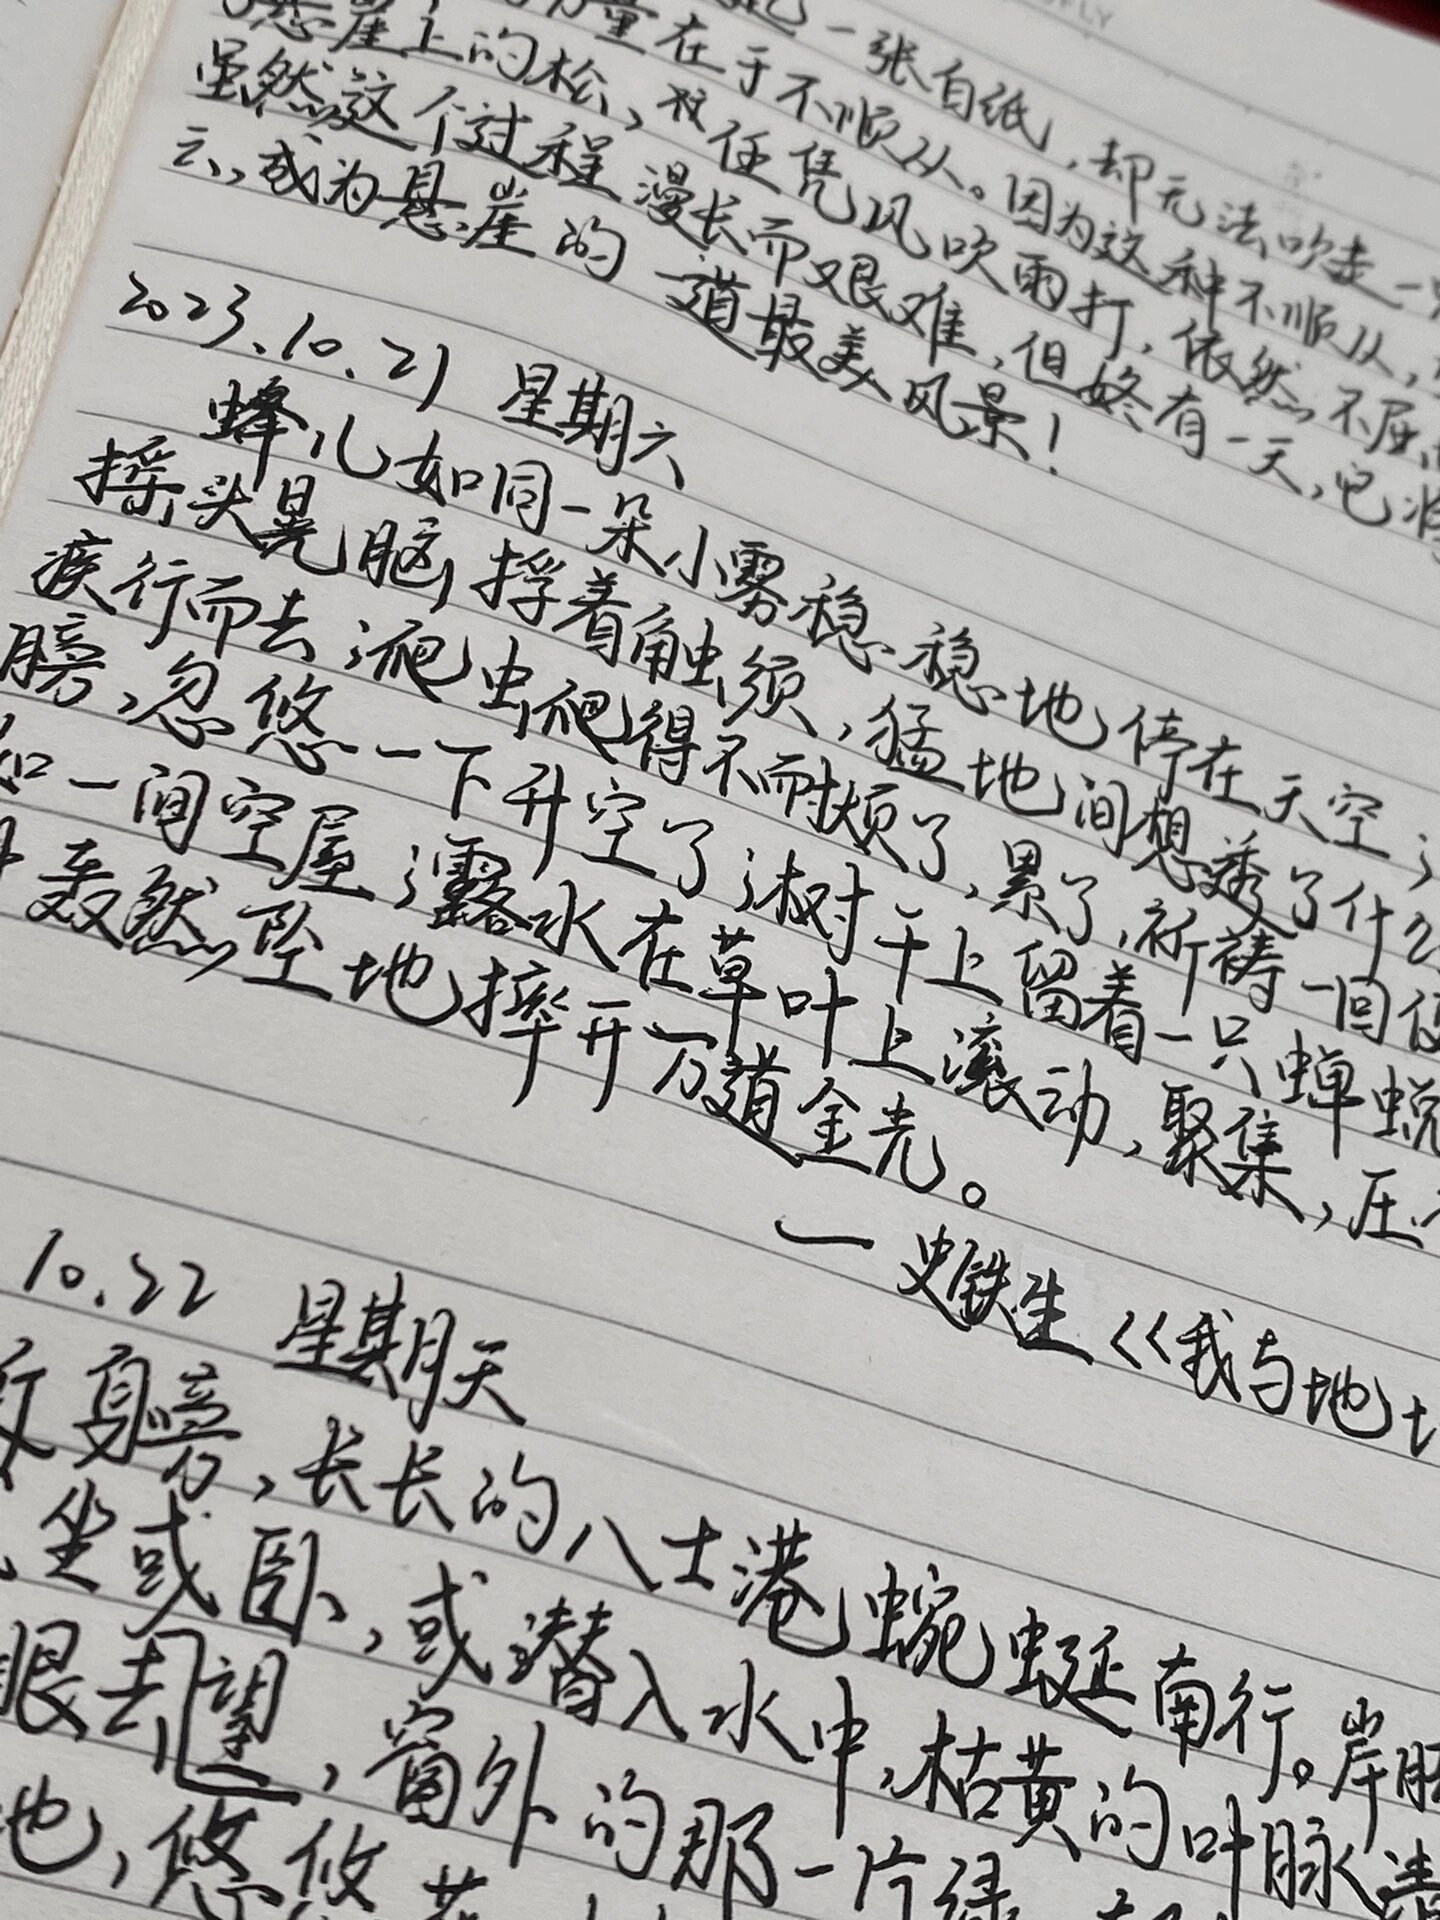 一张白纸，却无法吹走一只
量在于不顺从。因为这种不顺从，
悬崖上的松，在任凭风吹雨打，依然不屈，
虽然这个过程漫长而艰难，但终有一天，它将
云，成为悬崖的一道最美风景！
2023.10.21 星期六
蜂儿如同一朵小雾稳稳地停在天空；
摇头晃脑捋着触须，猛地间想透了什么
疾行而去；爬虫爬得不耐烦了，累了，祈祷一回便
膀，忽悠一下升空了；树干上留着一只蝉蜕
如一间空屋；露水在草叶上滚动，聚集，压
轰然坠地摔开万道金光。
一史铁生《我与地
10.22 星期天
身旁，长长的八士港蜿蜒南行。岸
坐或卧，或潜入水中，枯黄的叶脉清
眼去望，窗外的那一片绿
地，悠悠